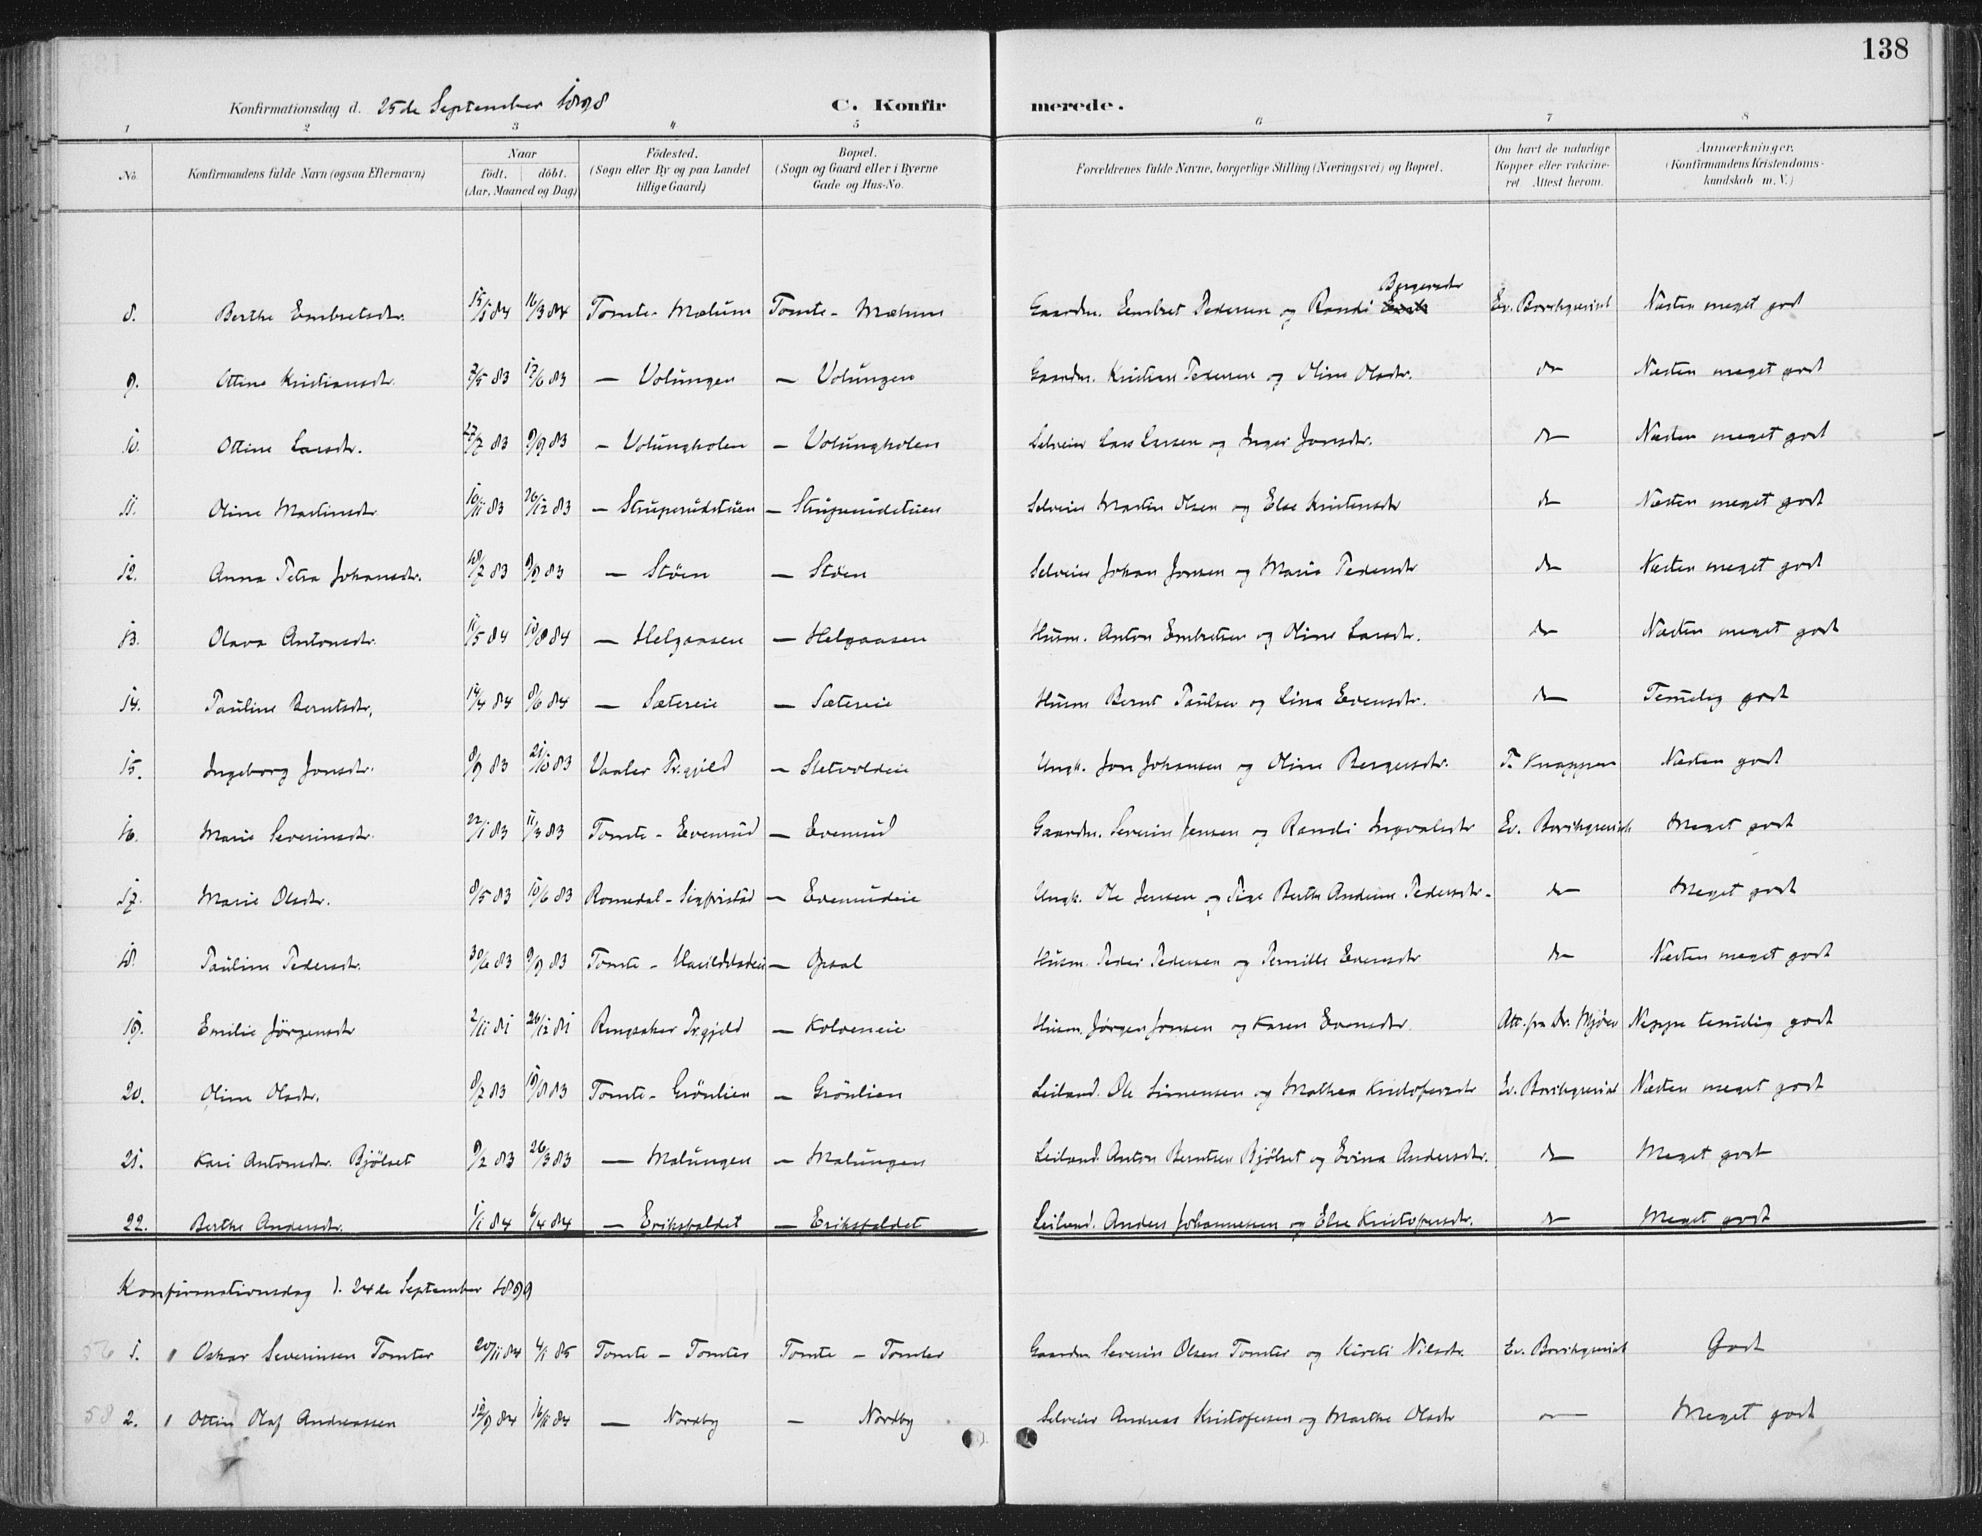 138
Konfirmationsdag d. 25de September 1898 C. Konfir merede.
1 2 3 4 5 6 7 8
No. Konfirmandens fulde Navn (ogsaa Efternavn) Naar født. døbt. (Aar, Maaned og Dag) Fødested. (Sogn eller By og paa Landet tillige Gaard) Bopæl. (Sogn og Gaard eller i Byerne Gade og Hus-No. Forældrenes fulde Navne, borgerlige Stilling (Næringsvei) og Bopæl. Om havt de naturlige Kopper eller vakcineret. Attest herom. Anmærkninger. (Konfirmandens Kristendomskundskab m. V.)
8. Berthe Embretsdr. 15/1 84 16/3 84 Tomte - Mælum Tomte - Mælum Gaardm. Embret Pedersen og Randi Bergersdr Ev. Borchgrevink Næsten meget godt
9. Ottine Kristiansdr. 7/5 83 17/6 83 — Volungen — Volungen Gaardm. Kristian Pedersen og Oline Olsdr. do Næsten meget godt
10. Ottine Larsdr. 27/7 83 9/9 83 — Volungholen — Volungholen Selveier Lars Larsen og Inger Jonsdr. do Næsten meget godt
11. Oline Martinsdr 10/11 83 26/12 83 — Struperudstuen — Struperudstuen Selveier Martin Olsen og Else Kristensdr do Næsten meget godt
12. Anna Petra Johansdr. 18/7 83 9/9 83 — Støen — Støen Selveier Johan Jonsen og Maria Pedersdr do Næsten meget godt
13. Olava Antonsdr. 11/5 84 10/8 84 — Helgaasen — Helgaasen Husm. Anton Embretsen og Oline Larsdr. do Næsten meget godt
14. Pauline Berntsdr, 14/4 84 8/6 84 — Sætereie — Sætereie Husm Bernt Paulsen og Lina Evensdr. do Temelig godt
15. Ingeborg Jonsdr. 8/9 83 21/10 83 Vaaler Pr.gjeld — Sletvoldeie Ungk. Jon Johansen og Oline Bergersdr. T. Knappen Næsten godt
16. Marie Severinsdr. 22/1 83 11/3 83 Tomte - Evenrud — Evenrud Gaardm. Severin Jensen og Randi Ingvalsdr Ev. Borchgrevink Meget godt
17. Marie Olsdr. 8/5 83 10/6 83 Romedal - Sigfristad — Evenrudeie Ungk. Ole Jensen og Pige Berthe Andrine Pedersdr. do Meget godt
18. Pauline Pedersdr. 30/6 83 9/9 83 Tomte - — Opsal Husm. Peder Pedersen og Pernille Evensdr do Næsten meget godt
19. Emilie Jørgensdr 2/11 81 26/12 81 Ringsaker Pr.gjeld — Kolveneie Husm. Jørgen Jonsen og Karen Evensdr. Att. fra Dr. Mjøen Neppe temelig godt
20. Oline Olsdr. 8/7 83 19/8 83 Tomte - Grønlien — Grønlien Leiland. Ole Simensen og Mathea Kristofersdr Ev. Borchgrevink Næsten meget godt
21. Kari Antonsdr. Bjølset 9/2 83 26/3 83 — Malungen — Malungen Leiland. Anton Berntsen Bjølset og Evina Andersdr. do Meget godt
22. Berthe Andersdr. 1/1 84 6/4 84 — Eriksfaldet — Eriksfaldet Leiland. Anders Johannessen og Else Kristofersdr. do Meget godt
Konfirmationsdag d. 24de September 1899
56 1. Oskar Severinsen Tomter 20/11 84 4/1 85 Tomte - Tomter Tomte - Tomter Gaardm Severin Olsen Tomter og Kirsti Nilsdr. Ev. Borchgrevink Godt
58 2. Ottin Olaf Andreassen 12/9 84 16/11 84 — Nordby — Nordby Selveier Andreas Kristofersen og Marthe Olsdr — Meget godt